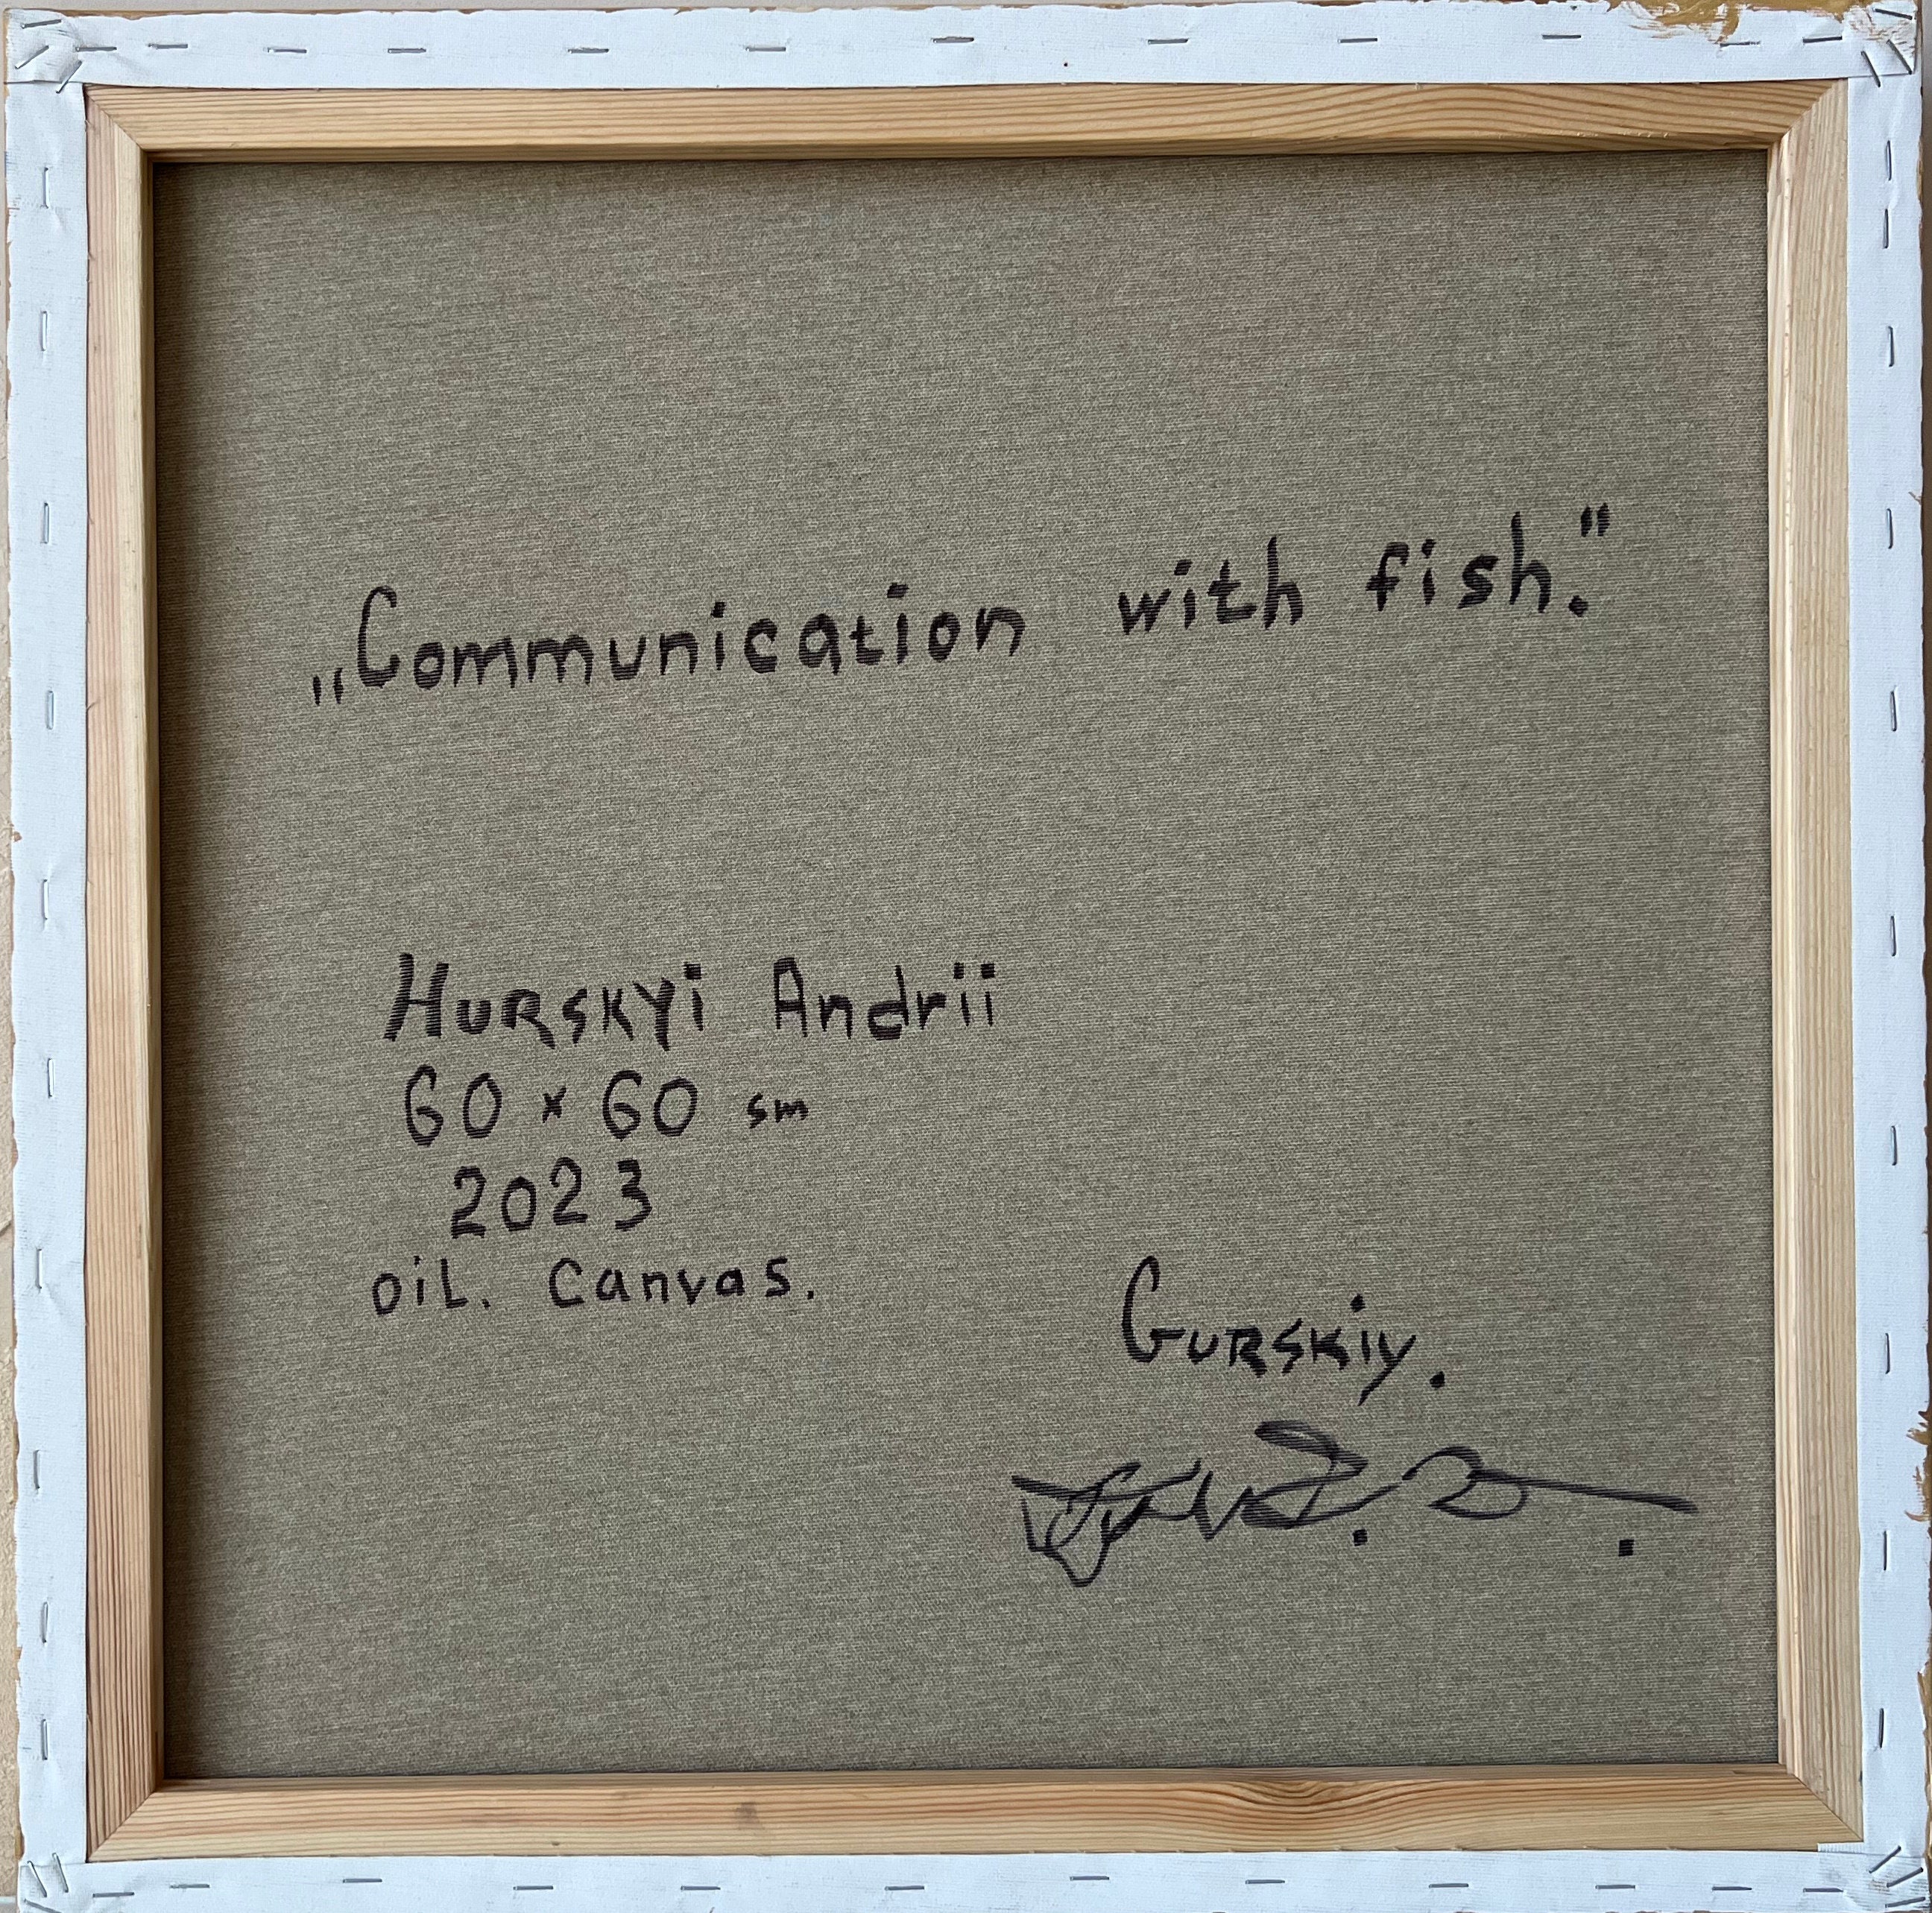 „Communication with fish."
Hurskyi Andrii
60 × 60 sm
2023
oil. Canvas.
Gurskiy.